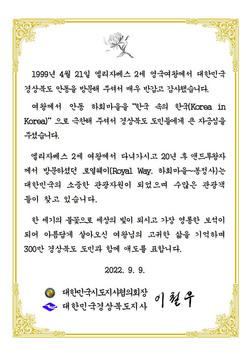 1999년 4월 21일 엘리자베스 2세 영국여왕께서 대한민국
경상북도 안동을 방문해 주셔서 매우 반갑고 감사했습니다.
여왕께서 안동 하회마을을 "한국 속의 한국(Korea in
Korea)" 으로 극찬해 주셔서 경상북도 도민들에게 큰 자긍심을
주셨습니다.
엘리자베스 2세 여왕께서 다녀가시고 20년 후 앤드루왕자
께서 방문하셨던 로열웨이(Royal Way. 하회마을~봉정사)는
대한민국의 소중한 관광자원이 되었으며 수많은 관광객
들이 찾고 있습니다.
한 세기의 불꽃으로 세상의 빛이 되시고 가장 영롱한 보석이
되어 아름답게 살아오신 여왕님의 고귀한 삶을 기억하며
300만 경상북도 도민과 함께 애도를 표합니다.
2022. 9. 9.
대한민국시도지사협의회장
대한민국경상북도지사 이철우